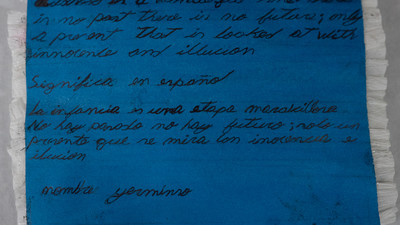 in no past there is no future; only
a present that is looked at with
innocence and illucion
Significa en español
la infancia es una etapa maravillosa.
No hay pasado no hay futuro; solo un
presente que se mira con inocencia e
ilucion
nombre yerminso